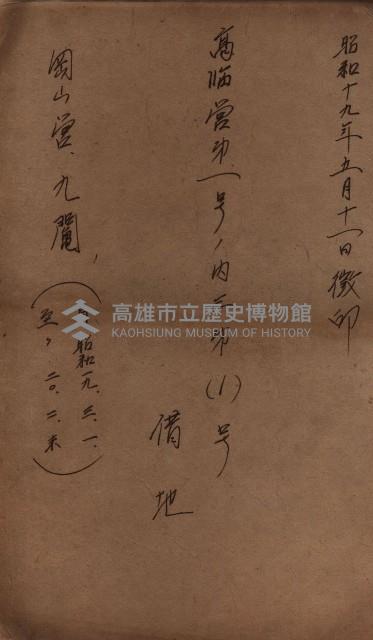 昭和十九年五月十一日徴印
高临営第一号ノ内
第(1)号
借地
岡山営、九
昭和一九、三、一、
至〃二〇、二、末
高雄市立歷史博物館
KAOHSIUNG MUSEUM OF HISTORY